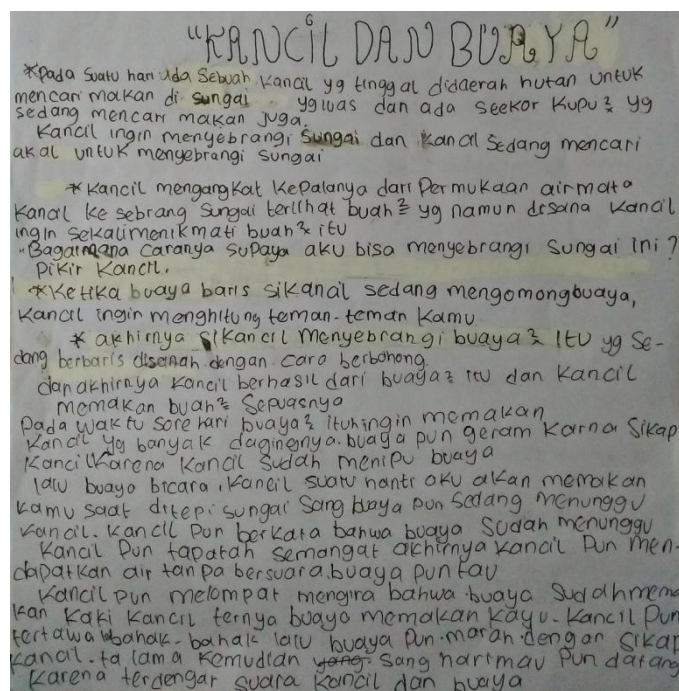 "KANCIL DAN BUAYA"
*Pada suatu hari ada sebuah kancil yg tinggal didaerah hutan untuk
mencari makan di sungai yg luas dan ada seekor kupu2 yg
sedang mencari makan juga.
Kancil ingin menyebrangi sungai dan kancil sedang mencari
akal untuk menyebrangi sungai
*Kancil mengangkat kepalanya dari permukaan air mata
kancil ke sebrang sungai terlihat buah2 yg namun disana kancil
ingin sekali menikmati buah2 itu
"Bagaimana caranya supaya aku bisa menyebrangi sungai ini?
Pikir kancil.
*Ketika buaya baris sikancil sedang mengomong buaya,
Kancil ingin menghitung teman-teman kamu
* akhirnya sikancil menyebrangi buaya2 itu yg se-
dang berbaris disanah dengan cara berbohong.
dan akhirnya kancil berhasil dari buaya2 itu dan kancil
memakan buah2 sepuasnya
Pada waktu sore hari buaya2 itu ingin memakan
kancil yg banyak dagingnya. buaya pun geram karna sikap
kancil karena kancil sudah menipu buaya
lalu buaya bicara, kancil suatu nanti aku akan memakan
kamu saat ditepi sungai sang buaya pun sedang menunggu
kancil. kancil pun berkata bahwa buaya sudah menunggu
Kancil pun tapatah semangat akhirnya kancil pun men-
dapatkan air tanpa bersuara. buaya pun tau
Kancil pun melompat mengira bahwa buaya sudah mema
kan kaki kancil ternya buaya memakan kayu. kancil pun
tertawa bahak-bahak lalu buaya pun marah dengan sikap
kancil. ta lama kemudian yang sang harimau pun datang
karena terdengar suara kancil dan buaya